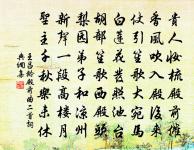 貴人妝梳殿前催
香風吹入殿後來
仗引笙歌大宛馬
白蓮花發照池台
胡部笙歌西殿頭
梨園弟子和涼州
新聲一段高樓月
聖主千秋樂未休
王昌齡殿前曲二首詞